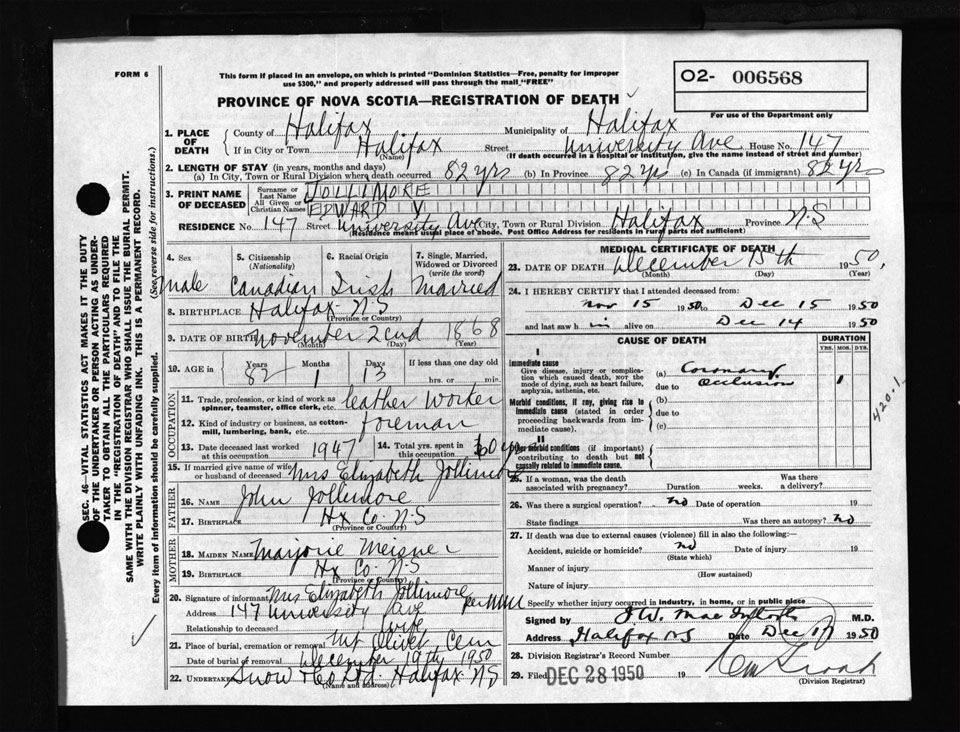 FORM 6
This form if placed in an envelope, on which is printed "Dominion Statistics—Free, penalty for improper
use $300," and properly addressed will pass through the mail "FREE"
O2- 006568
For use of the Department only
PROVINCE OF NOVA SCOTIA—REGISTRATION OF DEATH
1. PLACE OF DEATH
County of Halifax Municipality of Halifax
If in City or Town Halifax (Name) Street University Ave House No. 147
(If death occurred in a hospital or institution, give the name instead of street and number)
2. LENGTH OF STAY (in years, months and days)
(a) In City, Town or Rural Division where death occurred 82 yrs (b) In Province 82 yrs (c) In Canada (if immigrant) 82 yrs
3. PRINT NAME OF DECEASED
Surname or Last Name JOLLIMORE
All Given or Christian Names EDWARD V
RESIDENCE No. 147 Street University Ave City, Town or Rural Division Halifax Province N-S
(Residence means usual place of abode. Post Office Address for residents in Rural parts not sufficient)
4. Sex
male
5. Citizenship (Nationality)
Canadian
6. Racial Origin
Irish
7. Single, Married, Widowed or Divorced (write the word)
Married
8. BIRTHPLACE Halifax N-S
(Province or Country)
9. DATE OF BIRTH November 22nd 1868
(Month) (Day) (Year)
10. AGE in Years Months Days If less than one day old
82 1 13 hrs. or min.
OCCUPATION
11. Trade, profession, or kind of work as spinner, teamster, office clerk, etc. leather worker
12. Kind of industry or business, as cotton-mill, lumbering, bank, etc. foreman
13. Date deceased last worked at this occupation 1947
14. Total yrs. spent in this occupation
15. If married give name of wife or husband of deceased Mrs Elizabeth Jollimore
FATHER
16. Name John Jollimore
17. Birthplace Hx Co. N-S
(Province or Country)
MOTHER
18. Maiden Name Marjorie Meisner
19. Birthplace Hx Co. N-S
(Province or Country)
20. Signature of informant Mrs Elizabeth Jollimore
Address 147 University Ave
Relationship to deceased wife
21. Place of burial, cremation or removal Mt Olivet Cem
Date of burial or removal December 19th 1950
22. Undertaker Snow & Co Ltd. Halifax N-S
(Name and address)
MEDICAL CERTIFICATE OF DEATH
23. DATE OF DEATH December 15th 1950
(Month) (Day) (Year)
24. I HEREBY CERTIFY that I attended deceased from:
Nov 15 1950 to Dec 15 1950
and last saw him alive on Dec 14 1950
CAUSE OF DEATH
DURATION
YRS. MOS. DYS.
I
Immediate cause
Give disease, injury or complication which caused death, nor the mode of dying, such as heart failure, asphyxia, asthenia, etc.
(a) Coronary
due to Occlusion
1
Morbid conditions, if any, giving rise to immediate cause (stated in order proceeding backwards from immediate cause).
(b)
due to
(c)
420.1
II
Other morbid conditions (if important) contributing to death but not causally related to immediate cause.
25. If a woman, was the death associated with pregnancy? Duration weeks. Was there a delivery?
26. Was there a surgical operation? no Date of operation 19
State findings Was there an autopsy? no
27. If death was due to external causes (violence) fill in also the following:
Accident, suicide or homicide? no Date of injury 19
(State which)
Manner of injury
(How sustained)
Nature of injury
Specify whether injury occurred in industry, in home, or in public place
Signed by M.D.
Address Halifax NS Date Dec 17 1950
28. Division Registrar's Record Number
29. Filed DEC 28 1950 19
(Division Registrar)
SEC. 46—VITAL STATISTICS ACT MAKES IT THE DUTY
OF THE UNDERTAKER OR PERSON ACTING AS UNDER-
TAKER TO OBTAIN ALL THE PARTICULARS REQUIRED
IN THE "REGISTRATION OF DEATH" AND TO FILE THE
SAME WITH THE DIVISION REGISTRAR WHO SHALL ISSUE THE BURIAL PERMIT.
WRITE PLAINLY WITH UNFADING INK. THIS IS A PERMANENT RECORD.
Every item of information should be carefully supplied. (See reverse side for instructions.)